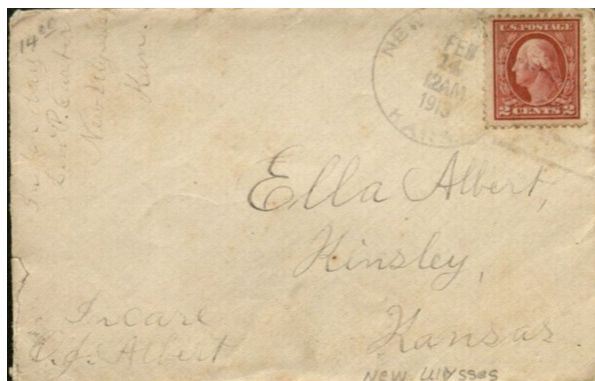 14.00
New Ulysses
Kan.
NEW
FEB
14
12AM
1913
KANS
U.S. POSTAGE
2 CENTS 2
Ella Albert,
Kinsley,
Kansas.
In care
C. J. Albert
NEW Ulysses